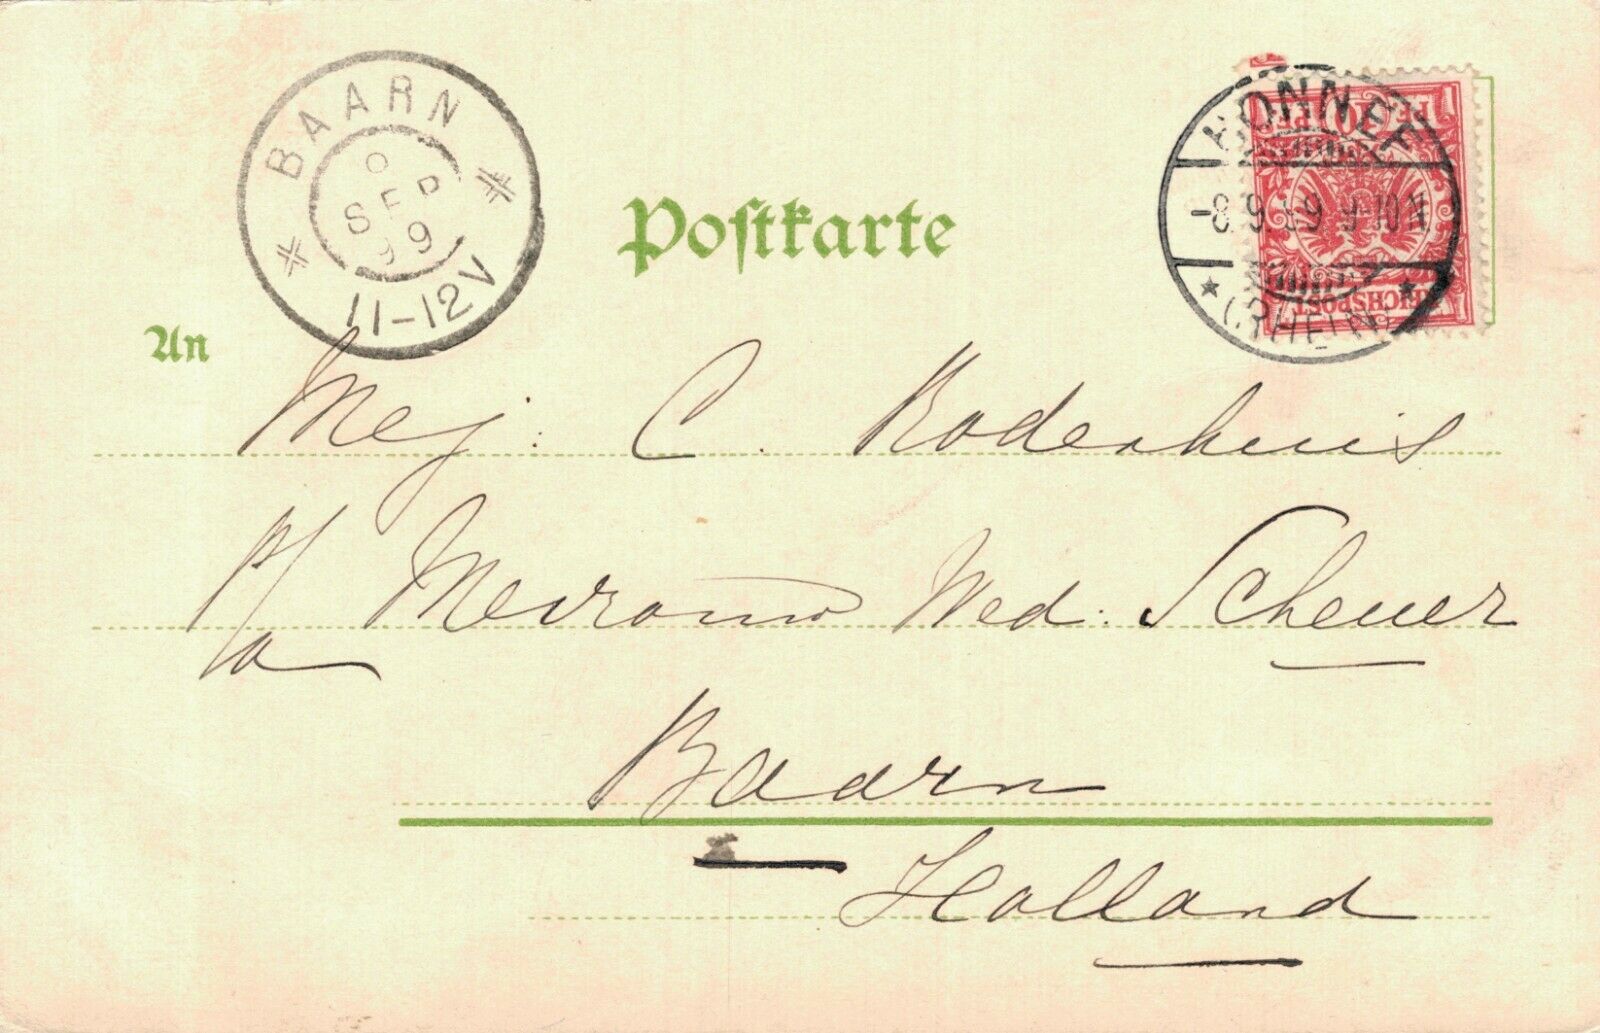 BAARN
SEP
99
11-12V
Postkarte
HONNEF
-8 9 99 9-10 N
(RHEIN)
10
REICHSPOST
An
Mej: C. Rodenhuis
p/a Mevrouw Wed: Scheuer
Baarn
Holland